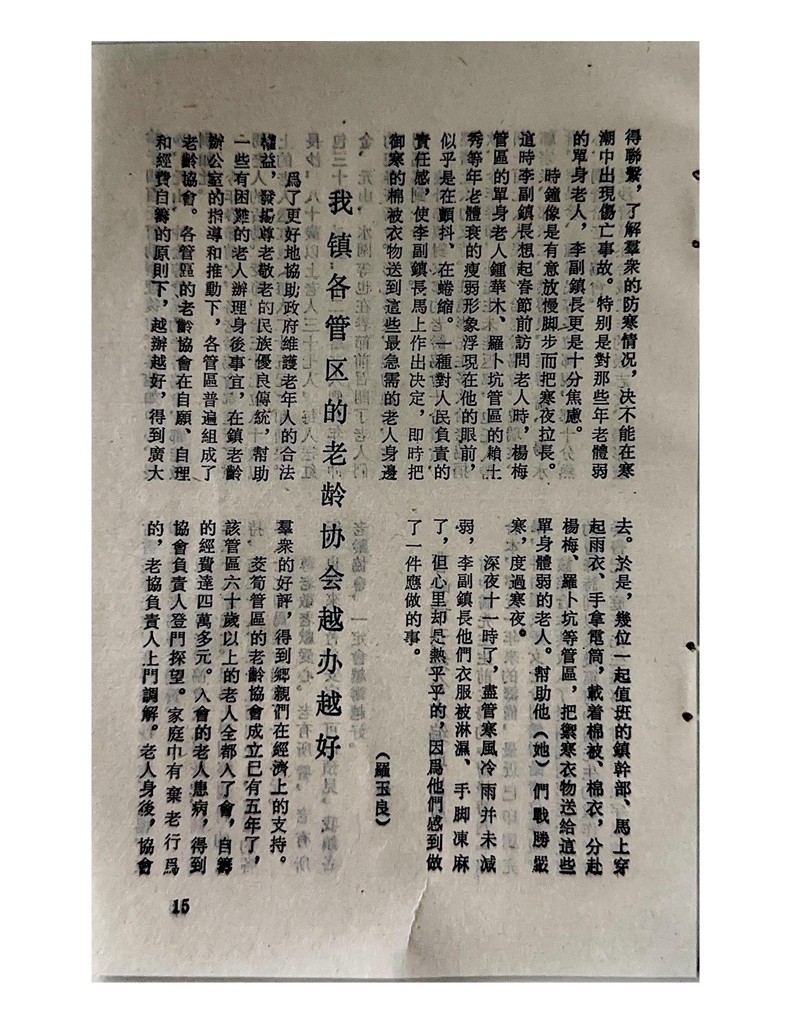 得聯繫，了解羣衆的防寒情況，決不能在寒
潮中出現傷亡事故。特别是對那些年老體弱
的單身老人，李副鎮長更是十分焦慮。
時鐘像是有意放慢脚步而把寒夜拉長。
這時李副鎮長想起春節前訪問老人時，楊梅
管區的單身老人鍾華木、羅卜坑管區的賴土
秀等年老體衰的瘦弱形象浮現在他的眼前，
似乎是在顫抖、在蜷缩。一種對人民負責的
責任感，使李副鎮長馬上作出决定，即時把
御寒的棉被衣物送到這些最急需的老人身邊
去。於是，幾位一起值班的鎮幹部、馬上穿
起雨衣、手拿電筒，載着棉被、棉衣，分赴
楊梅、羅卜坑等管區，把禦寒衣物送給這些
單身體弱的老人。幫助他（她）們戰勝嚴
寒，度過寒夜。
深夜十一時了，盡管寒風冷雨并未減
弱，李副鎮長他們衣服被淋濕、手脚凍麻
了，但心里却是熱乎乎的，因爲他們感到做
了一件應做的事。
（羅玉良）
我镇各管区的老龄协会越办越好
爲了更好地協助政府維護老年人的合法
權益，發揚尊老敬老的民族優良傳統，幫助
一些有困難的老人辦理身後事宜，在鎮老齡
辦公室的指導和推動下，各管區普遍組成了
老齡協會。各管區的老齡協會在自願、自理
和經費自籌的原則下，越辦越好，得到廣大
羣衆的好評，得到鄉親們在經濟上的支持。
茭筍管區的老齡協會成立已有五年了，
該管區六十歲以上的老人全都入了會，自籌
的經費達四萬多元。入會的老人患病，得到
協會負責人登門探望。家庭中有棄老行爲
的，老協負責人上門調解。老人身後，協會
15